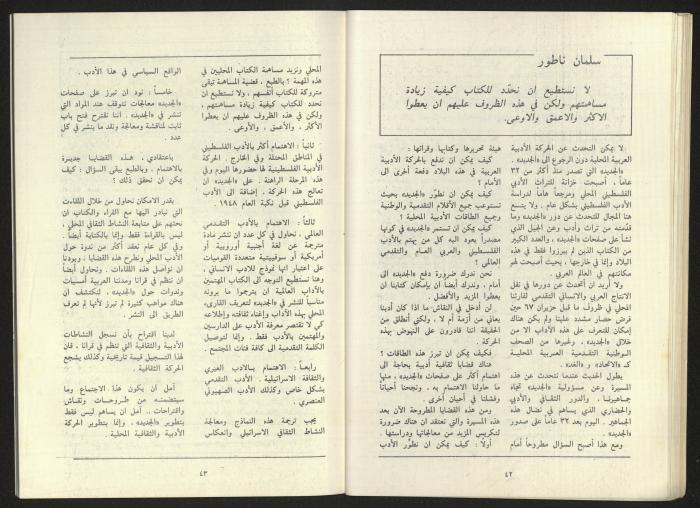 سلمان ناطور
لا نستطيع ان نحدّد للكتاب كيفية زيادة
مساهمتهم ولكن في هذه الظروف عليهم ان يعطوا
الاكثر والاعمق والاوعى.
لا يمكن التحدث عن الحركة الأدبية
العربية المحلية دون الرجوع الى «الجديد».
«الجديد» التي تصدر منذ أكثر من ٣٢
عاماً، أصبحت خزانة للتراث الأدبي
الفلسطيني المحلي ومرجعاً هاماً لدراسة
الأدب الفلسطيني بشكل عام. ولا يتسع
هنا المجال للتحدث عن دور «الجديد» وما
قدمته من تراث وأدب وعن الجيل الذي
نشأ على صفحات «الجديد»، والعدد الكبير
من الكتاب الذين لم يبرزوا فقط في هذه
البلاد وإنما في خارجها، بحيث أصبحت لهم
مكانتهم في العالم العربي.
ولا أريد ان أتحدث عن دورها في نقل
الانتاج العربي والانساني التقدمي لقارئنا
المحلي في ظروف ما قبل حزيران ٦٧ حين
فرض حصار مشدد علينا ولم يكن هناك
إمكان للتعرف على هذه الآداب الا من
خلال «الجديد»، وغيرها من الصحف
الوطنية التقدمية العربية المحلية
كـ «الاتحاد» و«الغد».
يطول الحديث عندما نتحدث عن هذه
المسيرة وعن مسؤولية «الجديد» تجاه
جماهيرنا، والدور الثقافي والأدبي
والحضاري الذي يساهم في نضال هذه
الجماهير. اليوم بعد ٣٢ عاماً على صدور
«الجديد».
ومع هذا أصبح السؤال مطروحاً أمام
هيئة تحريرها وكتابها وقرائها:
كيف يمكن ان ندفع بالحركة الأدبية
العربية في هذه البلاد دفعة أخرى الى
الأمام؟
كيف يمكن ان نطوّر «الجديد» بحيث
تستوعب جميع الأقلام التقدمية والوطنية
وجميع الطاقات الأدبية المحلية؟
كيف يمكن ان تستمر «الجديد» في كونها
مصدراً يعود اليه كل من يهتم بالأدب
الفلسطيني والعربي العام والتقدمي
العالمي؟
نحن ندرك ضرورة دفع «الجديد» الى
أمام، وندرك أيضاً ان بإمكان كتابنا ان
يعطوا المزيد والأفضل.
لن أدخل في النقاش ما اذا كان أدبنا
يعاني من أزمة أم لا، ولكني أنطلق من
الحقيقة اننا قادرون على النهوض بهذه
الحركة.
فكيف يمكن أن تبرز هذه الطاقات؟
هناك قضايا ثقافية أدبية بحاجة الى
اهتمام أكثر على صفحات «الجديد»، منها
ما حاولنا الاهتمام به، ونجحنا أحياناً
وفشلنا في أحيان أخرى.
ومن هذه القضايا المطروحة الآن بعد
هذه المسيرة والتي نعتقد ان هناك ضرورة
لتكريس المزيد من معالجاتها ودراستها.
أولاً: كيف يمكن ان نطوّر الأدب
٤٢
المحلي ونزيد مساهمة الكتاب المحليين في
هذه المهمة؟ بالطبع، قضية المساهمة تبقى
متروكة للكتاب أنفسهم، ولا نستطيع ان
نحدد للكتاب كيفية زيادة مساهمتهم،
ولكن في هذه الظروف عليهم ان يعطوا
الأكثر، والأعمق، والأوعى.
ثانياً: الاهتمام أكثر بالأدب الفلسطيني
في المناطق المحتلة وفي الخارج. الحركة
الأدبية الفلسطينية لها حضورها اليوم وفي
هذه المرحلة الراهنة. على «الجديد» ان
تعالج هذه الحركة، إضافة الى الأدب
الفلسطيني قبل نكبة عام ١٩٤٨.
ثالثاً: الاهتمام بالأدب التقدمي
العالمي، نحاول في كل عدد ان ننشر مادة
مترجمة عن لغة أجنبية أوروبية أو
أمريكية أو سوفييتية متعددة القوميات
على اعتبار انها نموذج للأدب الانساني،
وهنا نستطيع التوجه الى الكتاب المهتمين
بالآداب العالمية ان يترجموا ما يرونه
مناسباً للنشر في «الجديد» لتعريف القارىء
المحلي بهذه الآداب وإغناء ثقافته وإطلاعه
كي لا تقتصر معرفة الأدب على الدارسين
والمهتمين بالأدب فقط. وإنما لتوصيل
الكلمة التقدمية الى كافة فئات المجتمع.
رابعاً: الاهتمام بالأدب العبري
والثقافة الاسرائيلية. الأدب التقدمي
بشكل خاص وكذلك الأدب الصهيوني
العنصري.
يجب ترجمة هذه النماذج ومعالجة
النشاط الثقافي الاسرائيلي وانعكاس
الواقع السياسي في هذا الأدب.
خامساً: نود ان تبرز على صفحات
«الجديد» معالجات تتوقف عند المواد التي
تنشر في «الجديد». اننا نقترح فتح باب
ثابت لمناقشة ومعالجة ونقد ما ينشر في كل
عدد.
باعتقادي، هذه القضايا جديرة
بالاهتمام. وبالطبع يبقى السؤال: كيف
يمكن ان نحقق ذلك؟
بقدر الامكان نحاول من خلال اللقاءات
التي نبادر اليها مع القراء والكتاب ان
نحثهم على متابعة النشاط الثقافي المحلي،
ليس بالقراءة فقط وإنما بالكتابة أيضاً.
وفي كل عام نعقد أكثر من ندوة حول
الأدب المحلي ونطرح هذه القضايا، وبودنا
ان نواصل هذه اللقاءات. ونحاول أيضاً
ان ننظم في قرانا ومدننا العربية أمسيات
وندوات حول «الجديد»، لنكتشف ان
هناك مواهب كثيرة لم تبرز لأنها لم تعرف
الطريق الى النشر.
لدينا اقتراح بأن نسجل النشاطات
الأدبية والثقافية التي تنظم في قرانا، فان
لهذا التسجيل قيمة تاريخية وكذلك يشجع
الحركة الثقافية.
آمل أن يكون هذا الاجتماع وما
سيتضمنه من طروحات ونقاش
واقتراحات.. آمل ان يساهم ليس فقط
بتطوير «الجديد»، وإنما بتطوير الحركة
الأدبية والثقافية المحلية.
٤٣